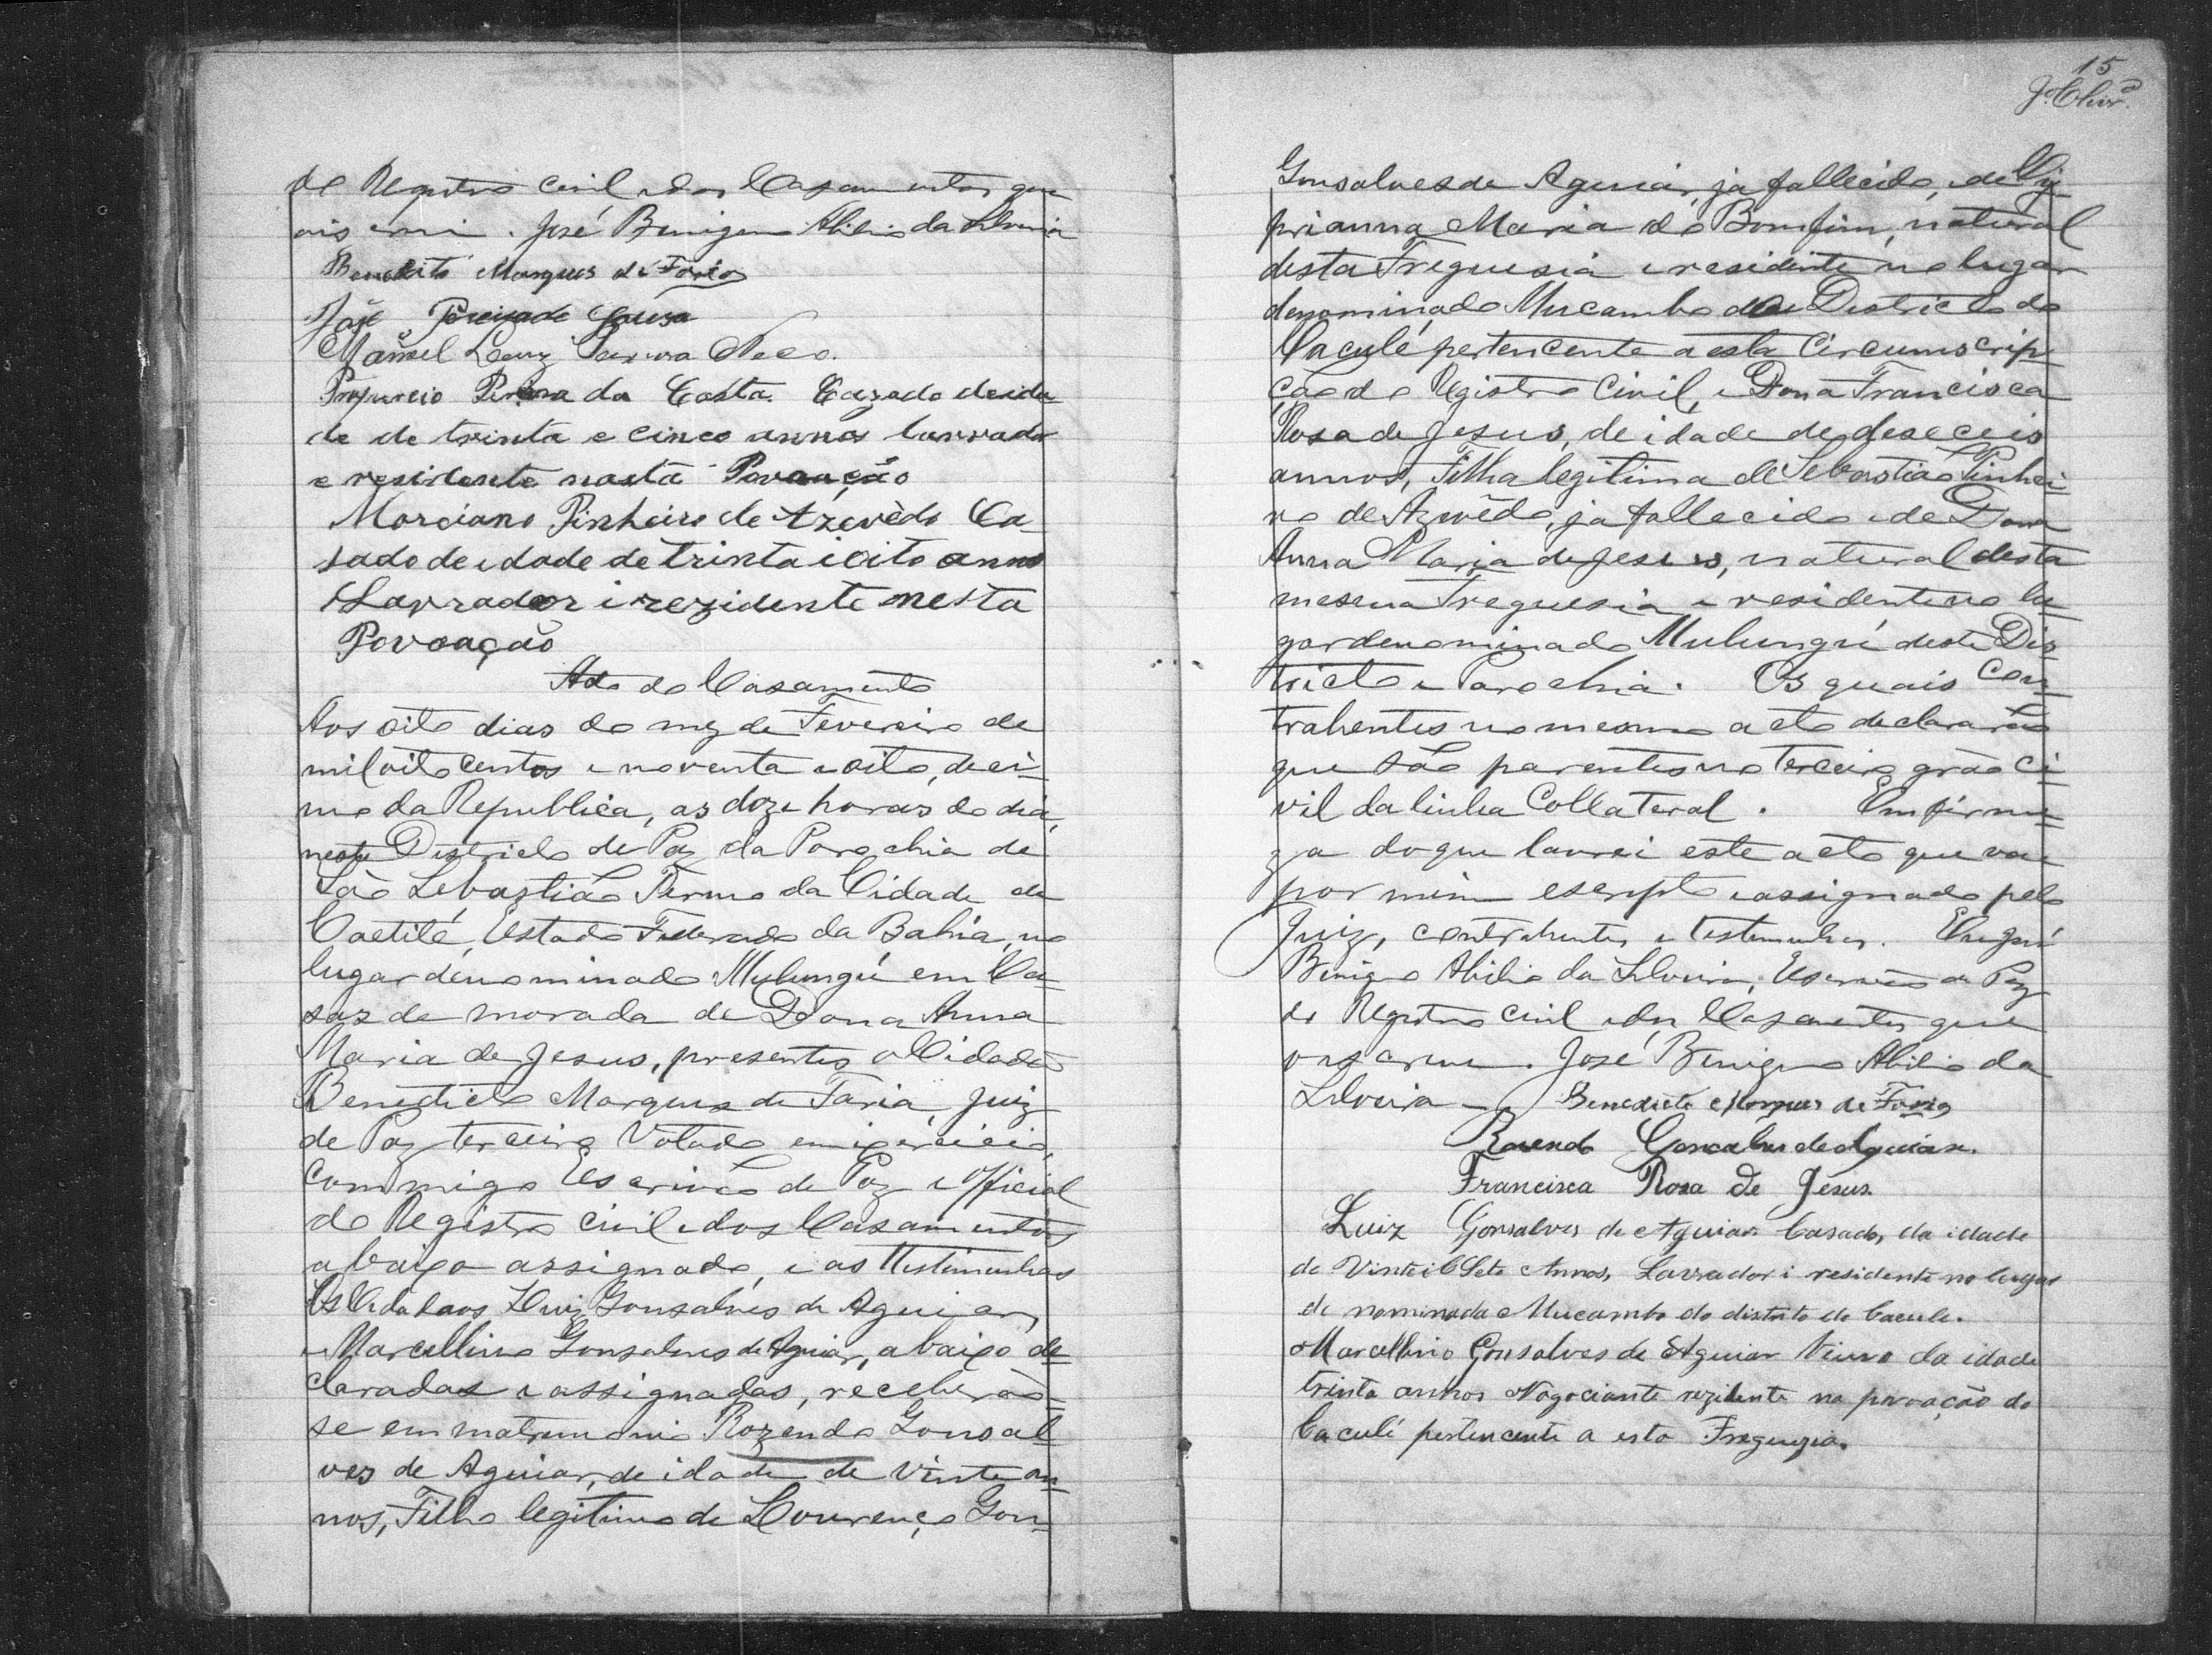 de Registro civil e dos Casamentos que
José Benigno Abilio da Silveira
Benedito Marques de Faria
José Pereira de Souza
Manoel Neco.
Porfireio Pereira da Costa. Cazado deida
de de trinta e cinco annos lavrador
e residente nesta Povoação
Marciano Pinheiro de Azevêdo Ca-
sado de idade de trinta i oito annos
Lavrador i rezidente nesta
Povoação
Acto do Casamento
Aos oito dias do mez de Fevereiro de
mil oito centos e noventa e oito, deci-
mo da Republica, as doze horas do dia,
neste Districto de Paz da Parochia de
São Sebastião Termo da Cidade de
Caetité, Estado Federado da Bahia, no
lugar denominado Mulungú em Ca-
sas de morada de Dona Anna
Maria de Jesus, presentes o Cidadão
Benedicto Marques de Faria, Juiz
de Paz terceiro Votado em exercicio,
commigo Escrivão de Paz e Official
do Registro civil e dos Casamentos
abaixo assignado, e as Testimunhas
Os Cidadaos Luiz Gonsalves de Aguiar,
e Marcellino Gonsalves de Aguiar, abaixo de
claradas e assignadas, receberão-
se em matrimonio Rozendo Gonsal
ves de Aguiar, de idade de Vinte an-
nos, Filho legitimo de Lourenço Gon-
15
Gonsalves de Aguiar, ja fallecido, e de Cy-
prianna Maria do Bomfim, natural
desta Freguesia e residente no lugar
denominado Mucambo do Districto do
Caculé pertencente a esta Circumscrip-
ção do Registro Civil, e Dona Francisca
Rosa de Jesus, de idade de deseceis
annos, Filha legitima de Sebastião Pinhei-
ro de Azevêdo, ja fallecido e de Dona
Anna Maria de Jesus, natural desta
mesma Freguesia e residente no lu-
gar denominado Mulungú deste Dis-
tricto e Parochia. Os quais con-
trahentes no mesmo acto declararão
que são parentes no terceiro gráo ci-
vil da linha Collateral. Em firme-
za do que lavrei este acto que vai
por mim escripto e assignado pelo
Juiz, contrahentes e testemunhas. Eu José
Benigno Abilio da Silveira, Escrivão de Paz
do Registro civil e dos Casamentos que
o escrevi. José Benigno Abilio da
Silveira - Benedicto Marques de Faria
Rosendo Goncalves de Aguiar.
Francisca Rosa de Jesus.
Luiz Gonsalves de Aguiar Casado, da idade
de Vinte i Sete Annos, Lavrador i residente no lugar
de nominado Mucambo do distrito do Cacule.
Marcellino Gonsalves de Aguiar Viuvo da idade
trinta annos Nogociante rezidente na povoação do
Caculé pertencente a esta Freguezia.